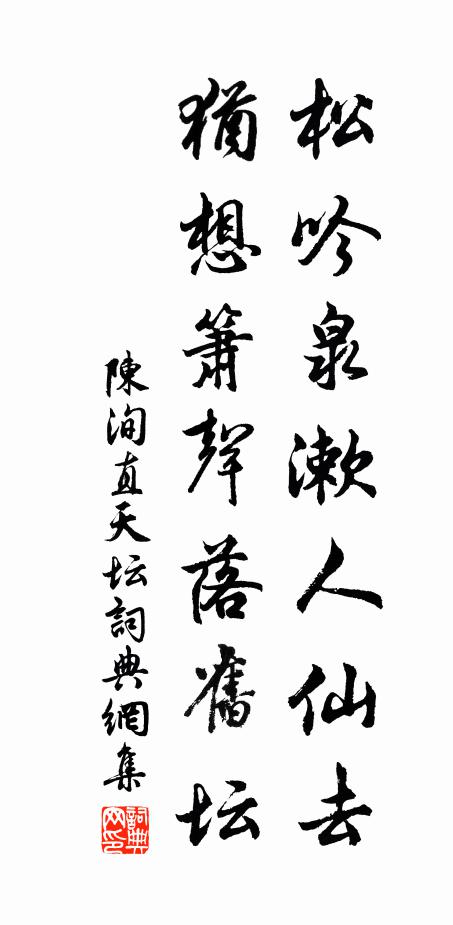 松吟泉漱人仙去
猶想簫聲落舊坛
陳洵直天坛詞典網集
詞典网印